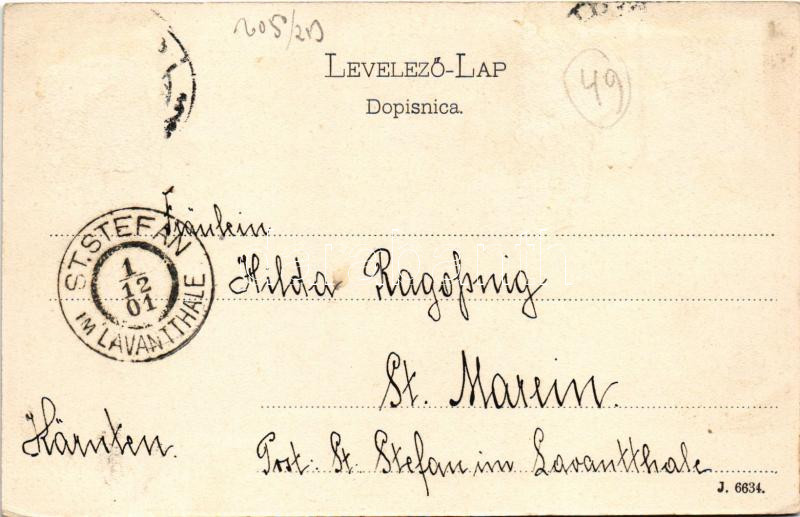 LEVELEZŐ-LAP
Dopisnica.
49
ST. STEFAN
1/12
01
IM LAVANTTHALE
Fräulein
Hilda Ragoßnig
St. Marein.
Kärnten.
Post: St. Stefan im Lavantthale
J. 6634.